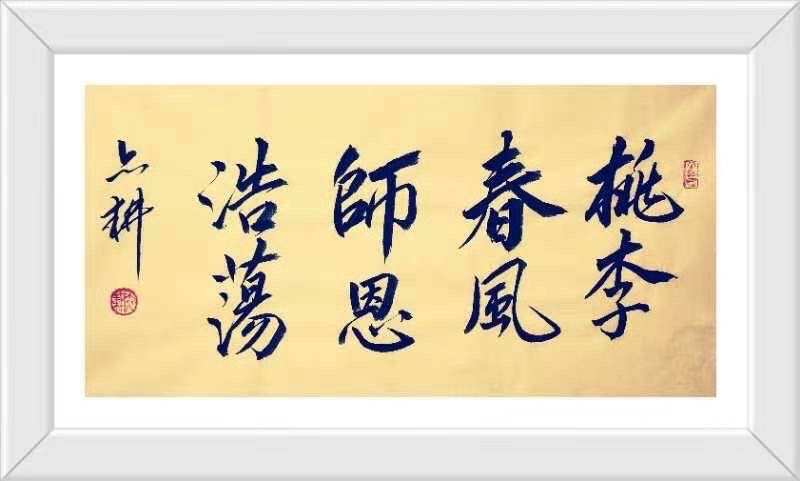 桃李
春風
師恩
浩蕩